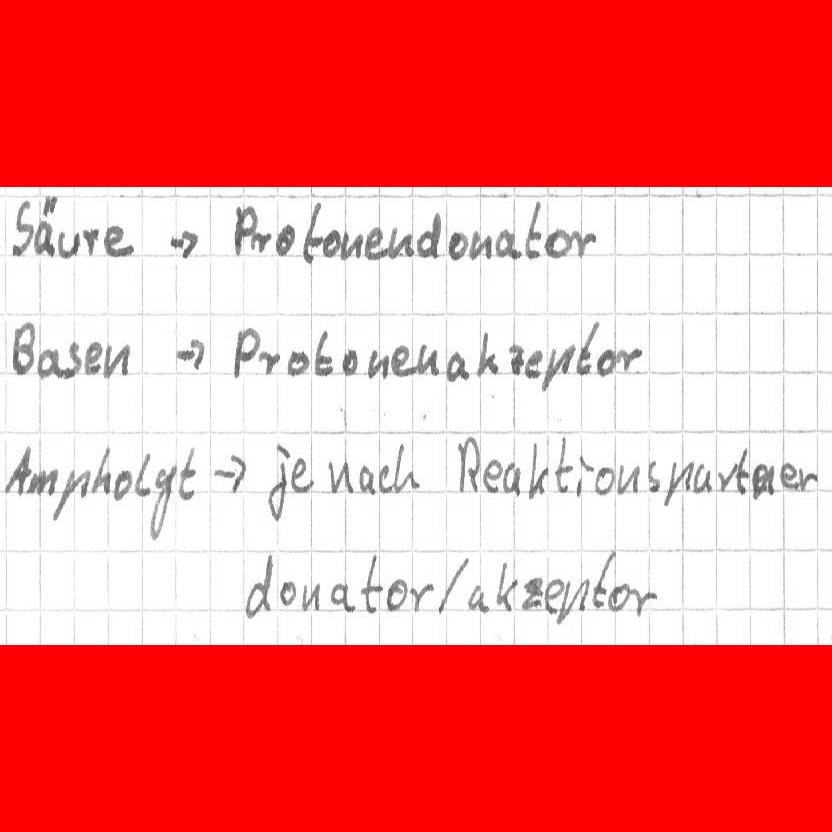 Säure → Protonendonator
Basen → Protonenakzeptor
Ampholyt → je nach Reaktionspartner
donator/akzeptor